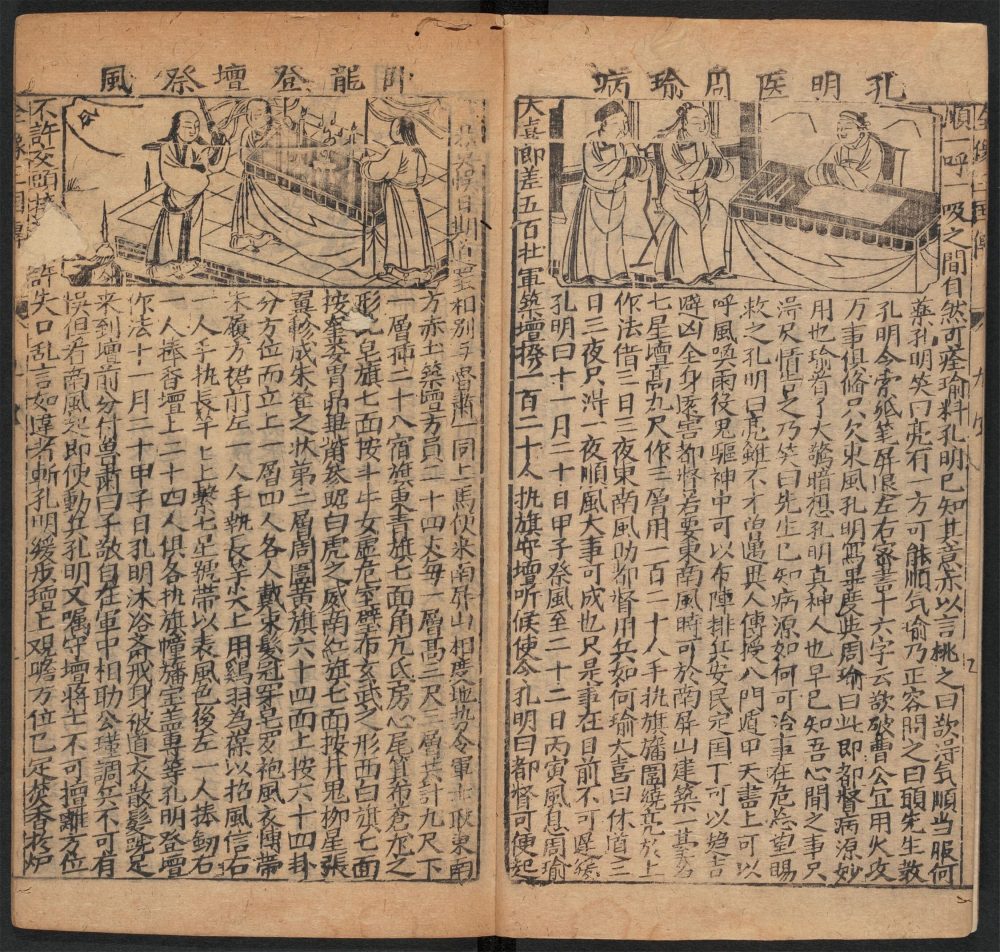 孔明医周瑜病
順一呼一吸之間自然可痊瑜料孔明已知其意亦以言桃之曰欲淂气順当服何
藥孔明笑曰亮有一方可能順气瑜乃正容問之曰頭先生教
孔明令索紙筆屏退左右密書十六字云欲破曹公宜用火攻
万事俱俻只欠东風孔明寫畢度與周瑜曰此即都督病源妙
用也瑜看了大驚暗想孔明真神人也早已知吾心間之事只
淂尽情告之乃笑曰先生已知病源如何可治事在危急望賜
救之孔明曰亮雖不才曽遇異人傳授八門遁甲天書上可以
呼風喚雨役鬼驅神中可以布陣排兵安民定国丁可以趋吉
避凶全身遠害都督若要東南風時可於南屏山建築一臺名
七星壇高九尺作三層用一百二十人手执旗旛圍繞亮於上
作法借三日三夜東南風助都督用兵如何瑜大喜曰休道三
日三夜只淂一夜順風大事可成也只是事在目前不可遲緩
孔明曰十一月二十日甲子祭風至二十二日丙寅風息周瑜
大喜即差五百壮軍築壇撥一百二十人执旗守壇听候使令孔明曰都督可便起
卧龍登壇祭風
日期相別与魯肅一同上馬使来南屏山相度地势令軍士取東南
方赤土築壇方員二十四丈每一層髙三尺三層共計九尺下
一層揷二十八宿旗東青旗七面角亢氐房心尾箕布倉龙之
形北皂旗七面按斗牛女虚危室壁布玄武之形西白旗七面
按奎婁胃昴畢觜参踞白虎之威南紅旗七面按井鬼柳星張
翼軫成朱雀之状第二層周圍黄旗六十四面上按六十四卦
分方位而立上一層四人各人戴束髪冠穿皂罗袍風衣愽带
朱履方裙前左一人手执長竿尖上用鷄羽為葆以招風信右
一人手执長竿上繋七星號带以表風色後左一人捧劒右
一人捧香壇上二十四人俱各执旗幢旛宝盖等孔明登壇
作法十一月二十甲子日孔明沐浴斋戒身披道衣散髮跣足
来到壇前分付魯肅曰子敬自在軍中相助公瑾調兵不可有
悞但看南風起即便動兵孔明又嘱守壇將士不可擅離方位
不許交頭許失口乱言如違者斬孔明緩步壇上观瞻方位已定焚香扵炉